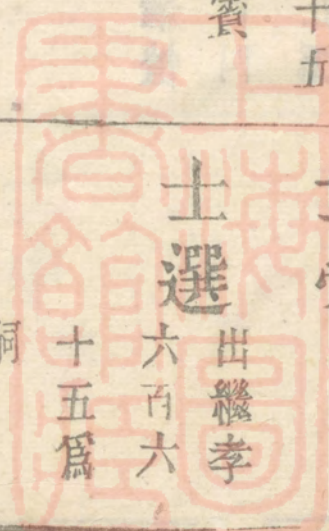 十五
賓
士選
出繼孝
六百六
十五爲
祠
上海圖
書館藏